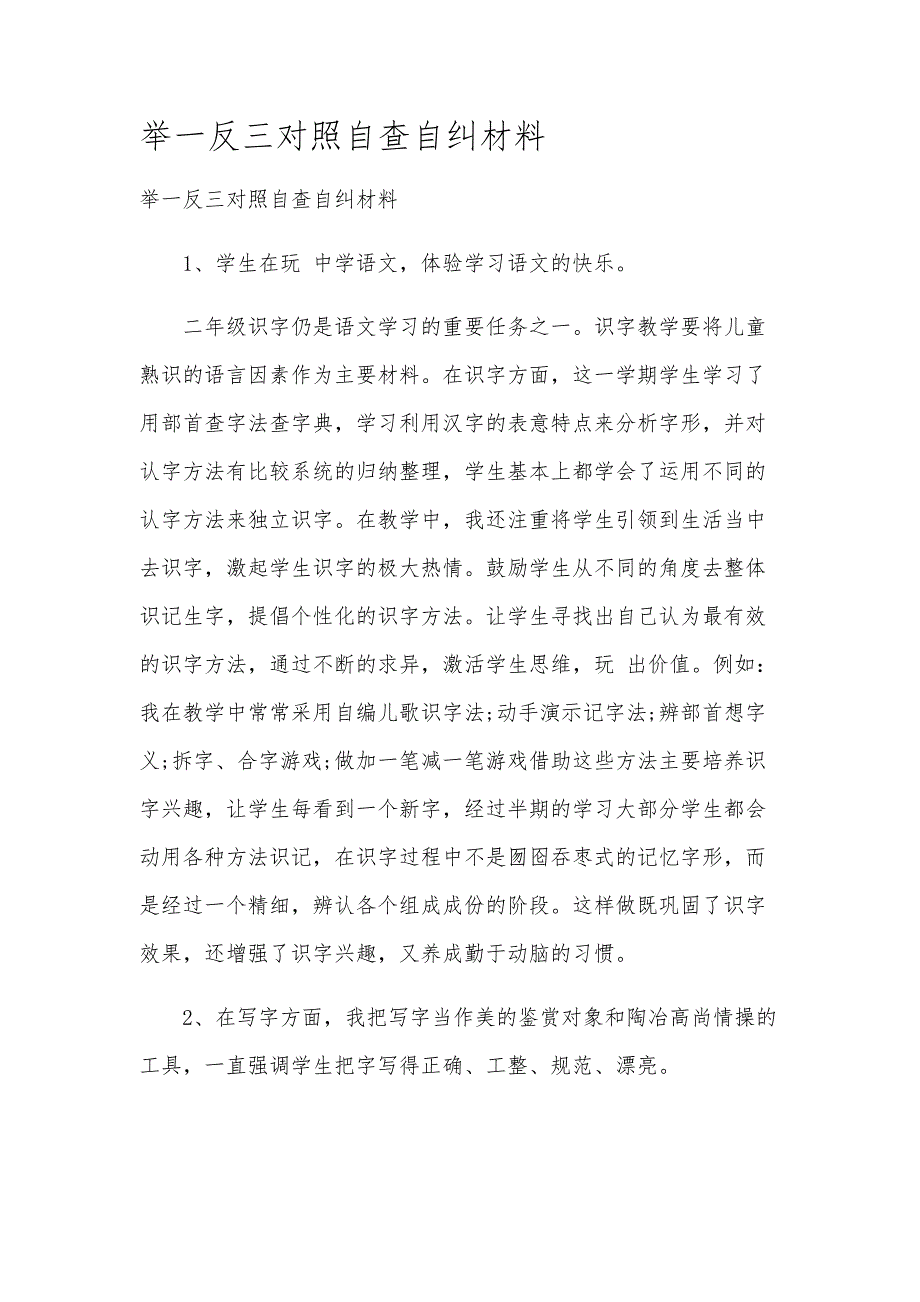 举一反三对照自查自纠材料
举一反三对照自查自纠材料
1、学生在玩 中学语文，体验学习语文的快乐。
二年级识字仍是语文学习的重要任务之一。识字教学要将儿童
熟识的语言因素作为主要材料。在识字方面，这一学期学生学习了
用部首查字法查字典，学习利用汉字的表意特点来分析字形，并对
认字方法有比较系统的归纳整理，学生基本上都学会了运用不同的
认字方法来独立识字。在教学中，我还注重将学生引领到生活当中
去识字，激起学生识字的极大热情。鼓励学生从不同的角度去整体
识记生字，提倡个性化的识字方法。让学生寻找出自己认为最有效
的识字方法，通过不断的求异，激活学生思维，玩 出价值。例如：
我在教学中常常采用自编儿歌识字法;动手演示记字法;辨部首想字
义;拆字、合字游戏;做加一笔减一笔游戏借助这些方法主要培养识
字兴趣，让学生每看到一个新字，经过半期的学习大部分学生都会
动用各种方法识记，在识字过程中不是囫囵吞枣式的记忆字形，而
是经过一个精细，辨认各个组成成份的阶段。这样做既巩固了识字
效果，还增强了识字兴趣，又养成勤于动脑的习惯。
2、在写字方面，我把写字当作美的鉴赏对象和陶冶高尚情操的
工具，一直强调学生把字写得正确、工整、规范、漂亮。